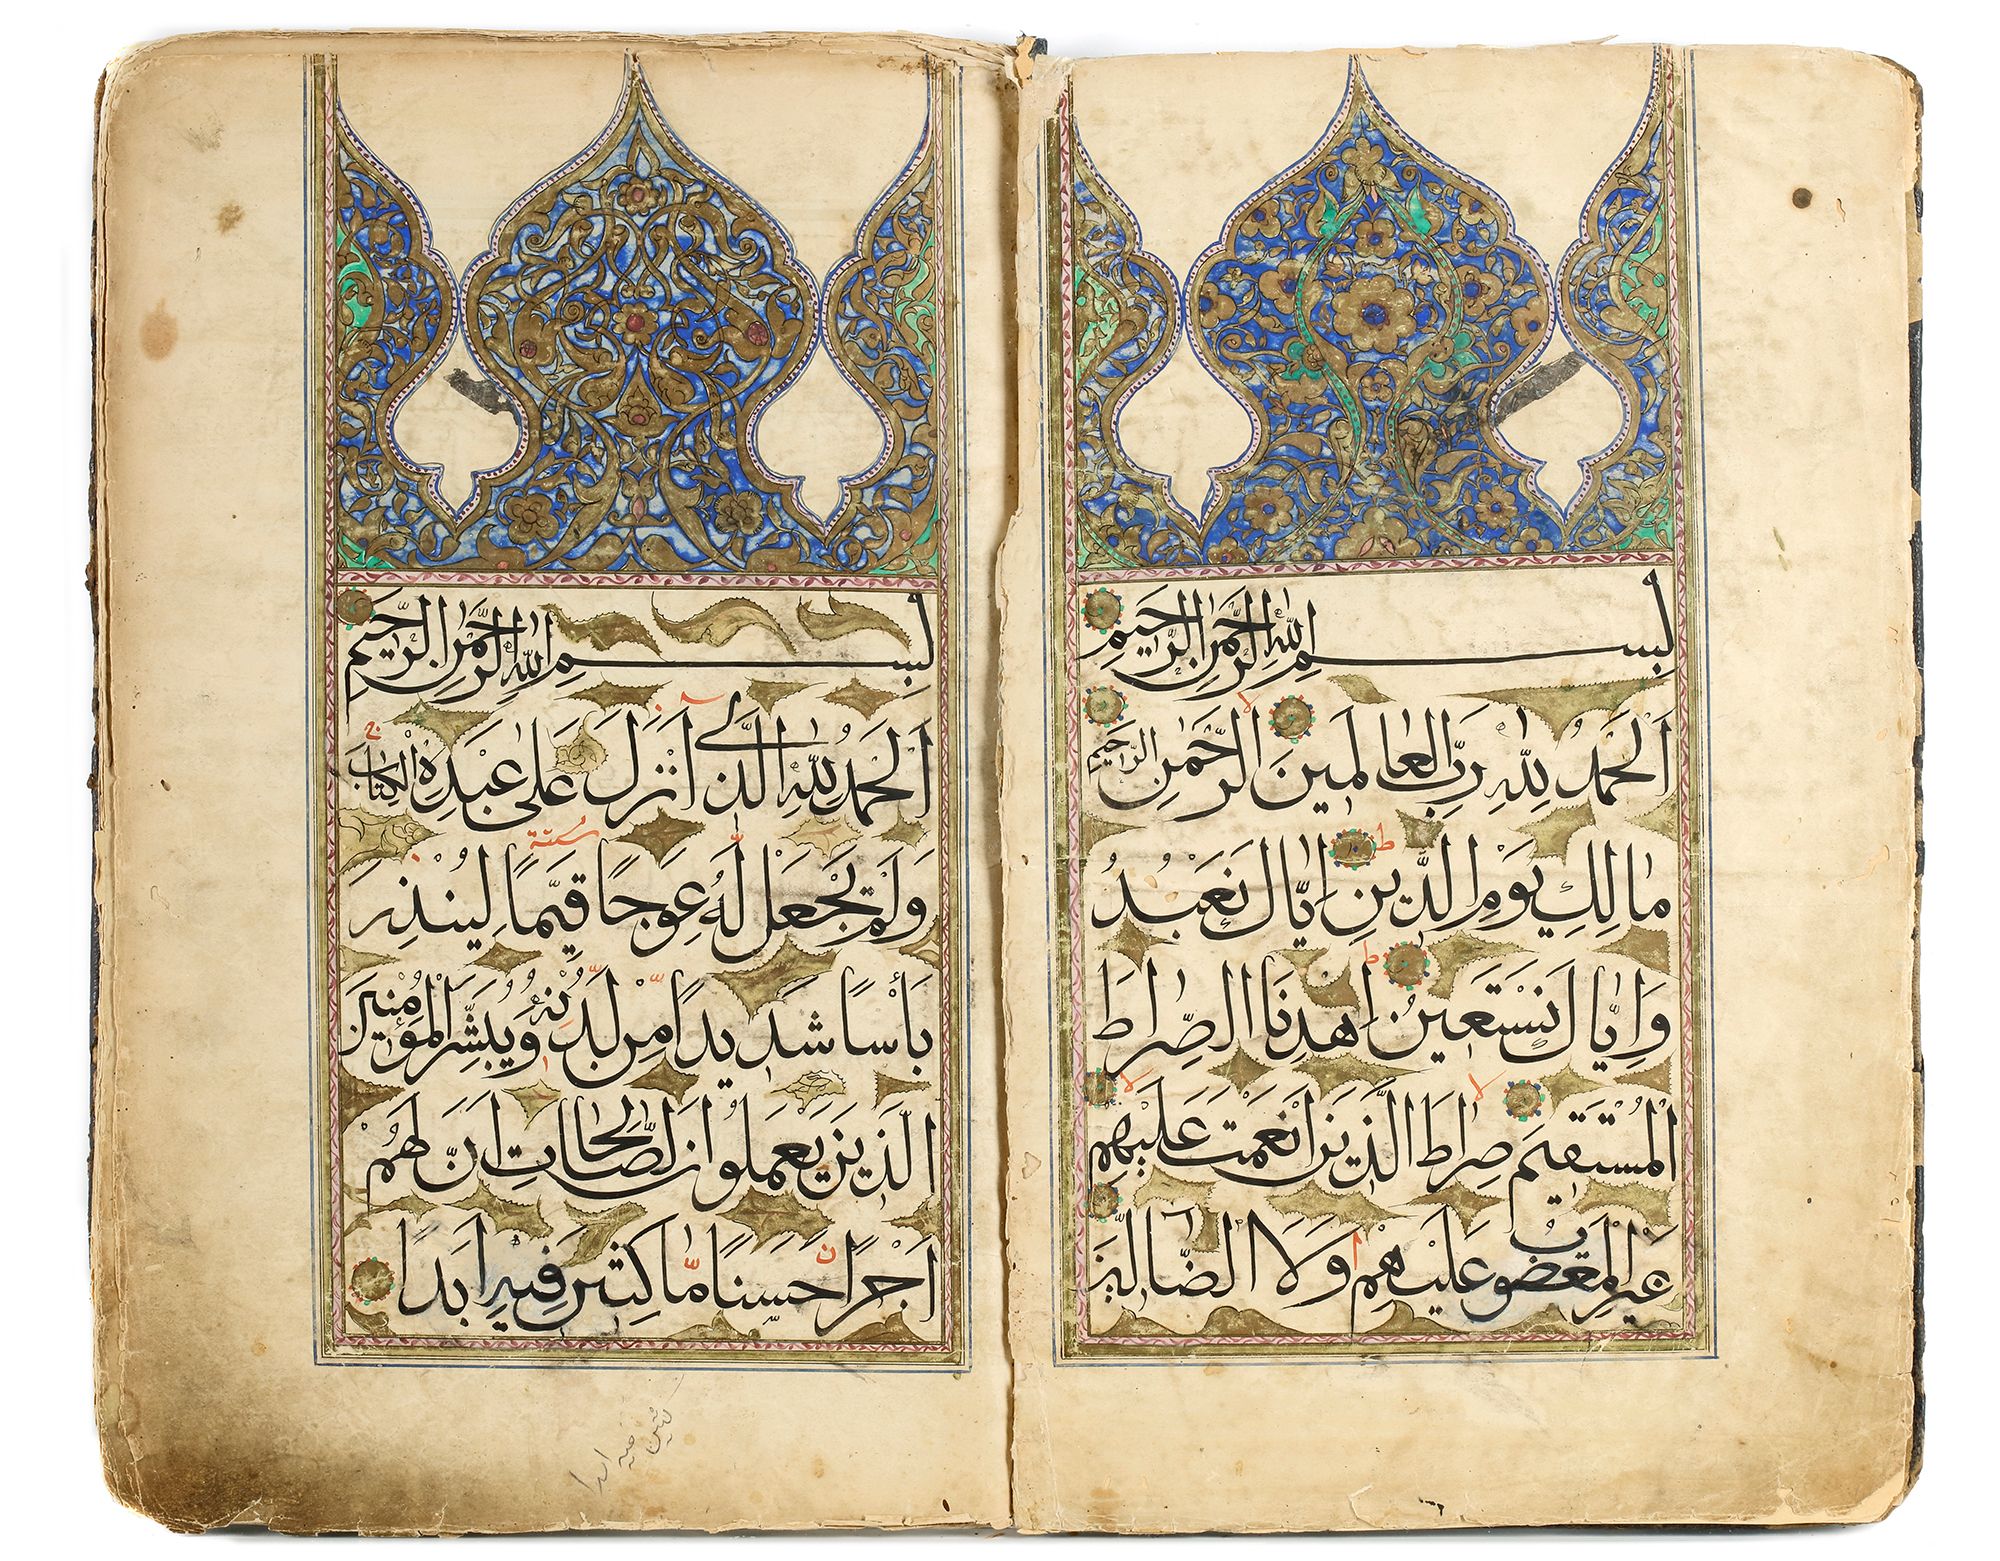 بِسْمِ اللهِ الرَّحْمٰنِ الرَّحِيمِ
اَلْحَمْدُ لِلّٰهِ رَبِّ الْعَالَمِينَ الرَّحْمٰنِ الرَّحِيمِ
مَالِكِ يَوْمِ الدِّينِ اِيَّاكَ نَعْبُدُ
وَاِيَّاكَ نَسْتَعِينُ اِهْدِنَا الصِّرَاطَ
الْمُسْتَقِيمَ صِرَاطَ الَّذِينَ اَنْعَمْتَ عَلَيْهِمْ
غَيْرِ الْمَغْضُوبِ عَلَيْهِمْ وَلَا الضَّالِّينَ
بِسْمِ اللهِ الرَّحْمٰنِ الرَّحِيمِ
اَلْحَمْدُ لِلّٰهِ الَّذِى اَنْزَلَ عَلٰى عَبْدِهِ الْكِتَابَ
وَلَمْ يَجْعَلْ لَهُ عِوَجًا قَيِّمًا لِيُنْذِرَ
بَأْسًا شَدِيدًا مِنْ لَدُنْهُ وَيُبَشِّرَ الْمُؤْمِنِينَ
الَّذِينَ يَعْمَلُونَ الصَّالِحَاتِ اَنَّ لَهُمْ
اَجْرًا حَسَنًا مَّاكِثِينَ فِيهِ اَبَدًا